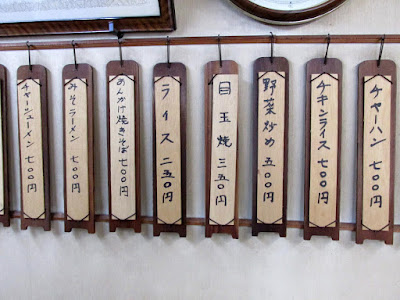 チャーハン 七〇〇円
チキンライス 七〇〇円
野菜炒め 五〇〇円
目玉焼 三五〇円
ライス 二五〇円
あんかけ焼きそば 七〇〇円
みそラーメン 七〇〇円
チャーシューメン 七〇〇円